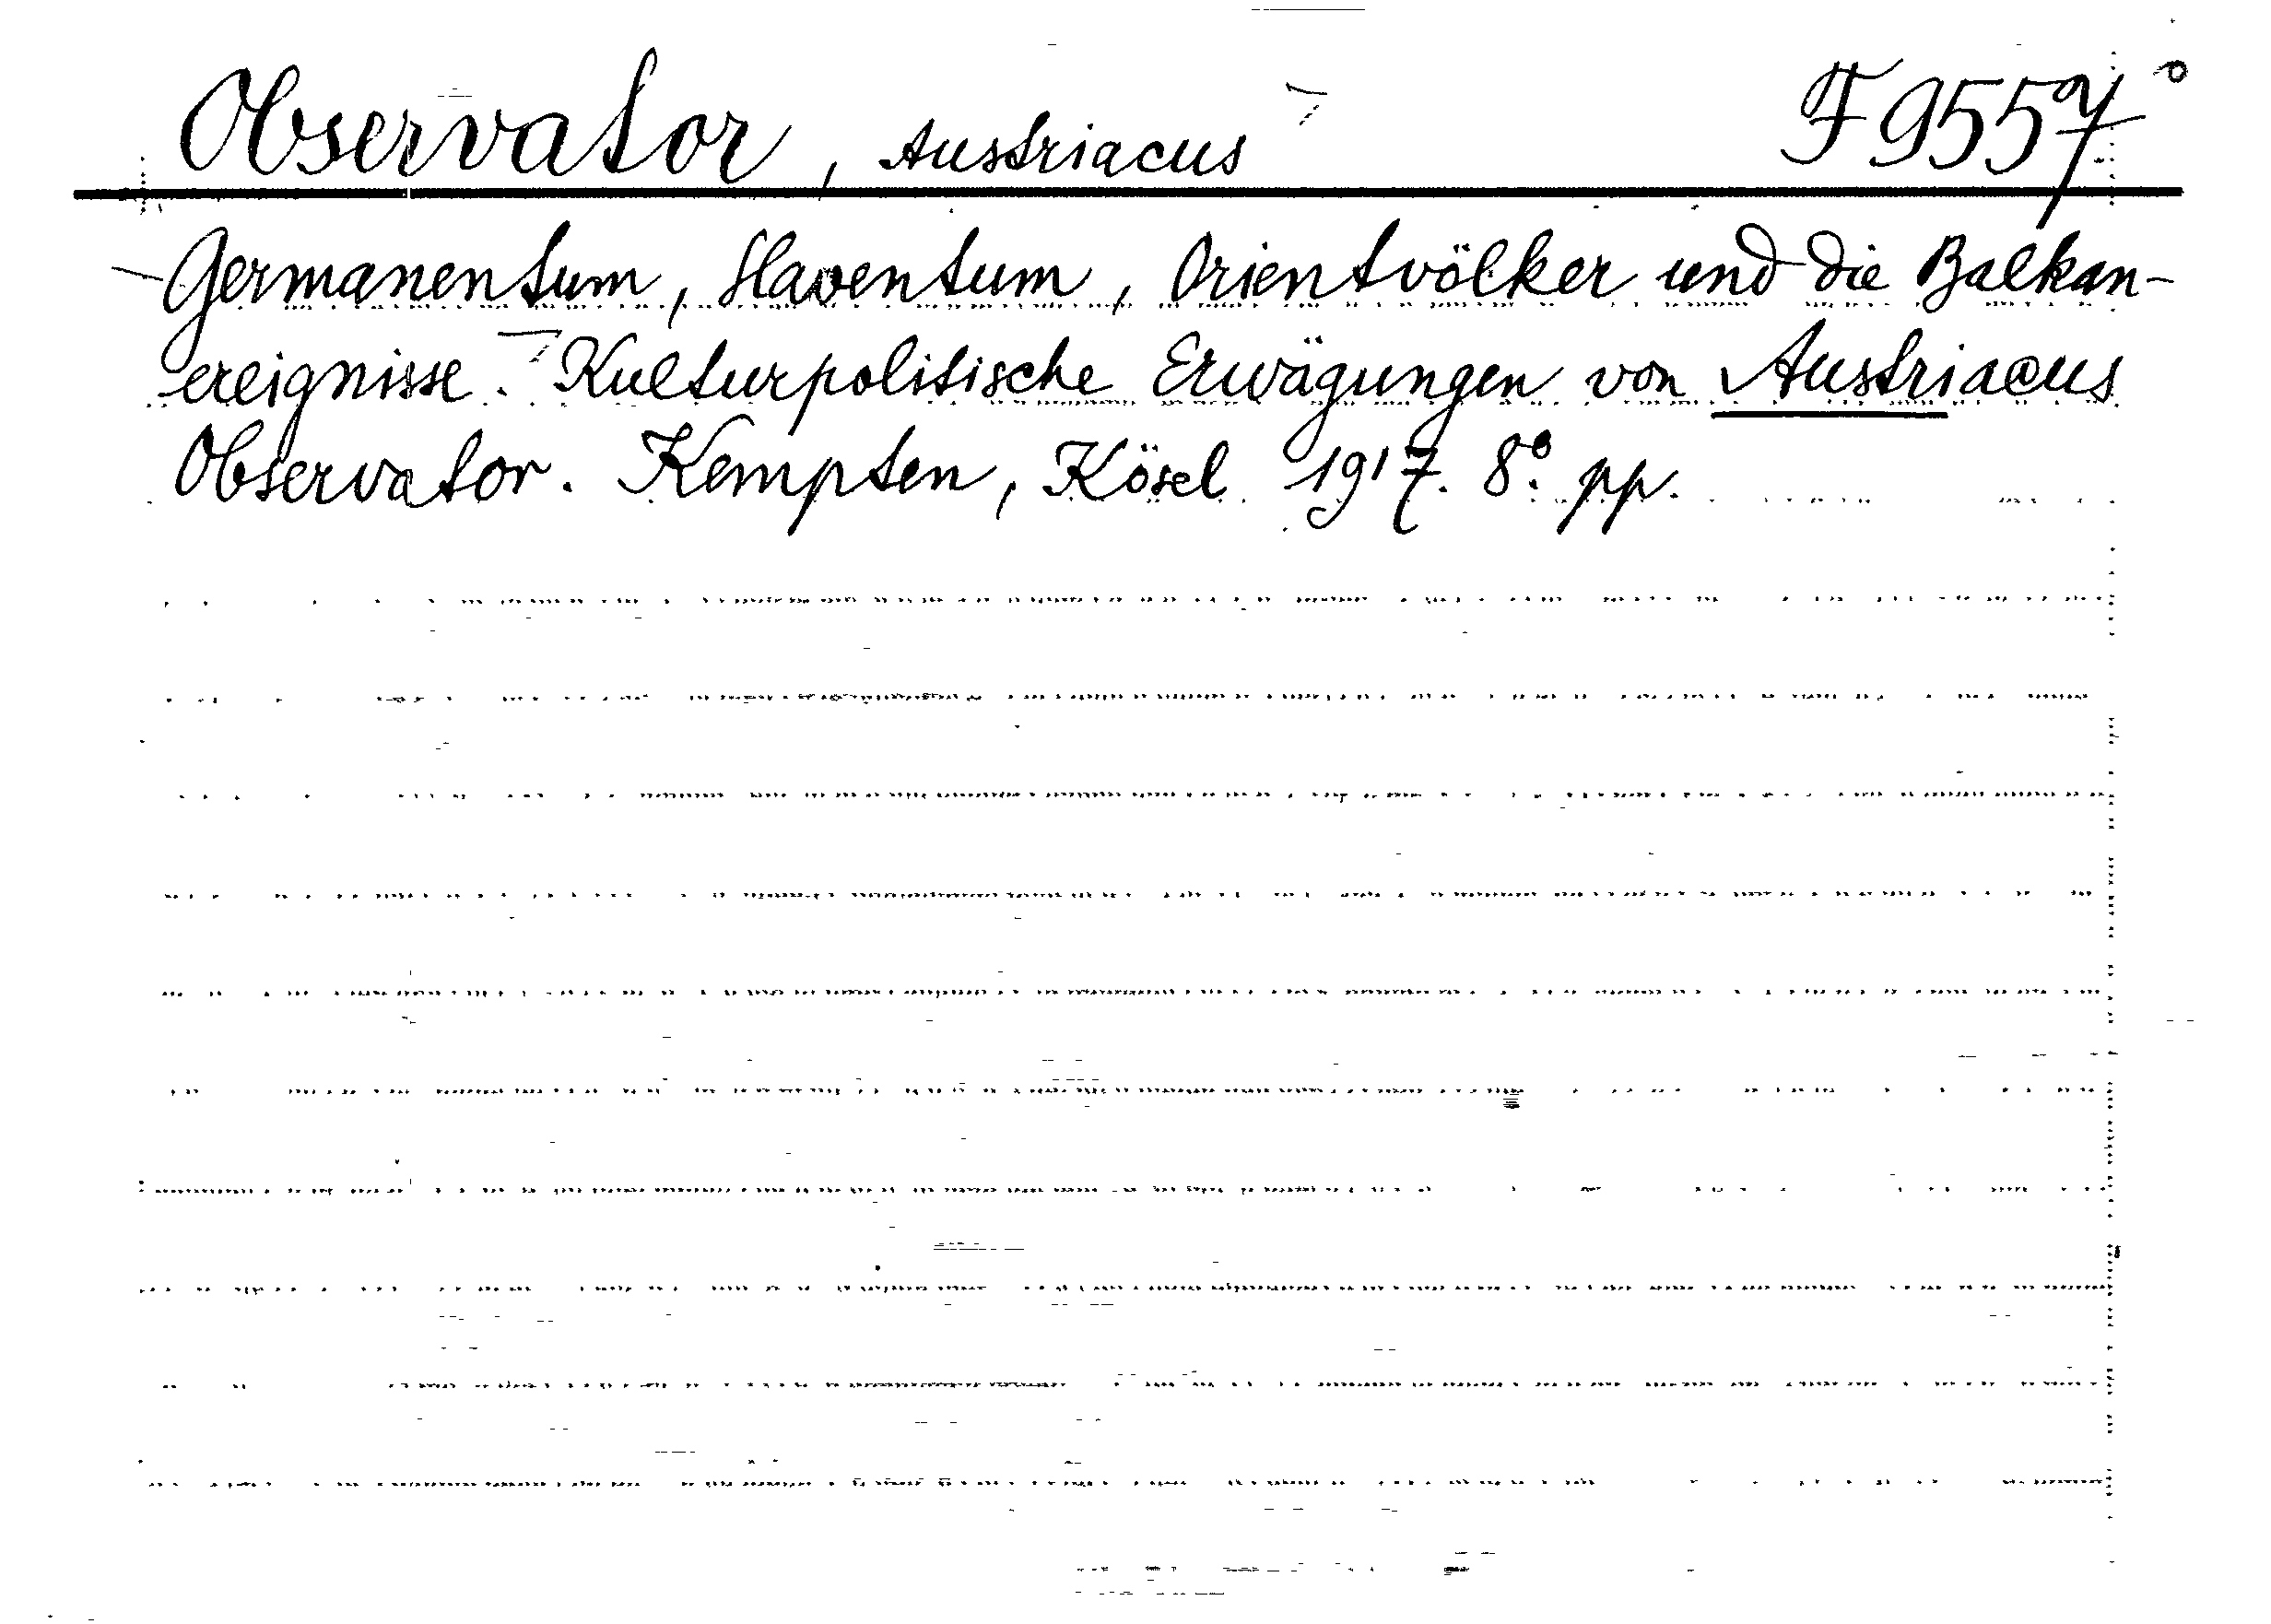 Observator, Austriacus F 9557°
Germanentum, Slaventum, Orientvölker und die Balkan-
ereignisse. Kulturpolitische Erwägungen von Austriacus
Observator. Kempten, Kösel 1917. 8° pp.